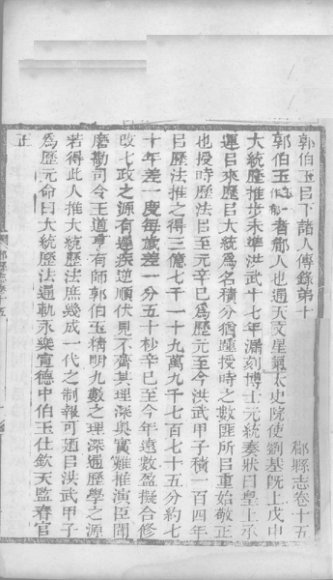 鄢縣志卷十五
郭伯玉㠯下諸人傳錄弟十
郭伯玉者鄢人也通天文星氣太史院使劉基旣上戊申
大統歷推步未準洪武十七年漏刻博士元統奏狀曰皇上承
運㠯來歷㠯大統爲名積分猶踵授時之數匪所㠯重始敬正
也授時歷法㠯至元辛巳爲歷元至今洪武甲子積一百四年
㠯歷法推之得三億七千一十九萬九千七百七十五分約七
十年差一度每歲差一分五十秒辛巳至今年遠數盈擬合修
改七政之源有遲疾逆順伏見不齊其理深奧實難推演臣聞
磨勘司令王道亨有師郭伯玉精明九數之理深通歷學之源
若得此人推大統歷法庶幾成一代之制報可迺㠯洪武甲子
爲歷元命曰大統歷法通軌永樂宣德中伯玉仕欽天監春官
正